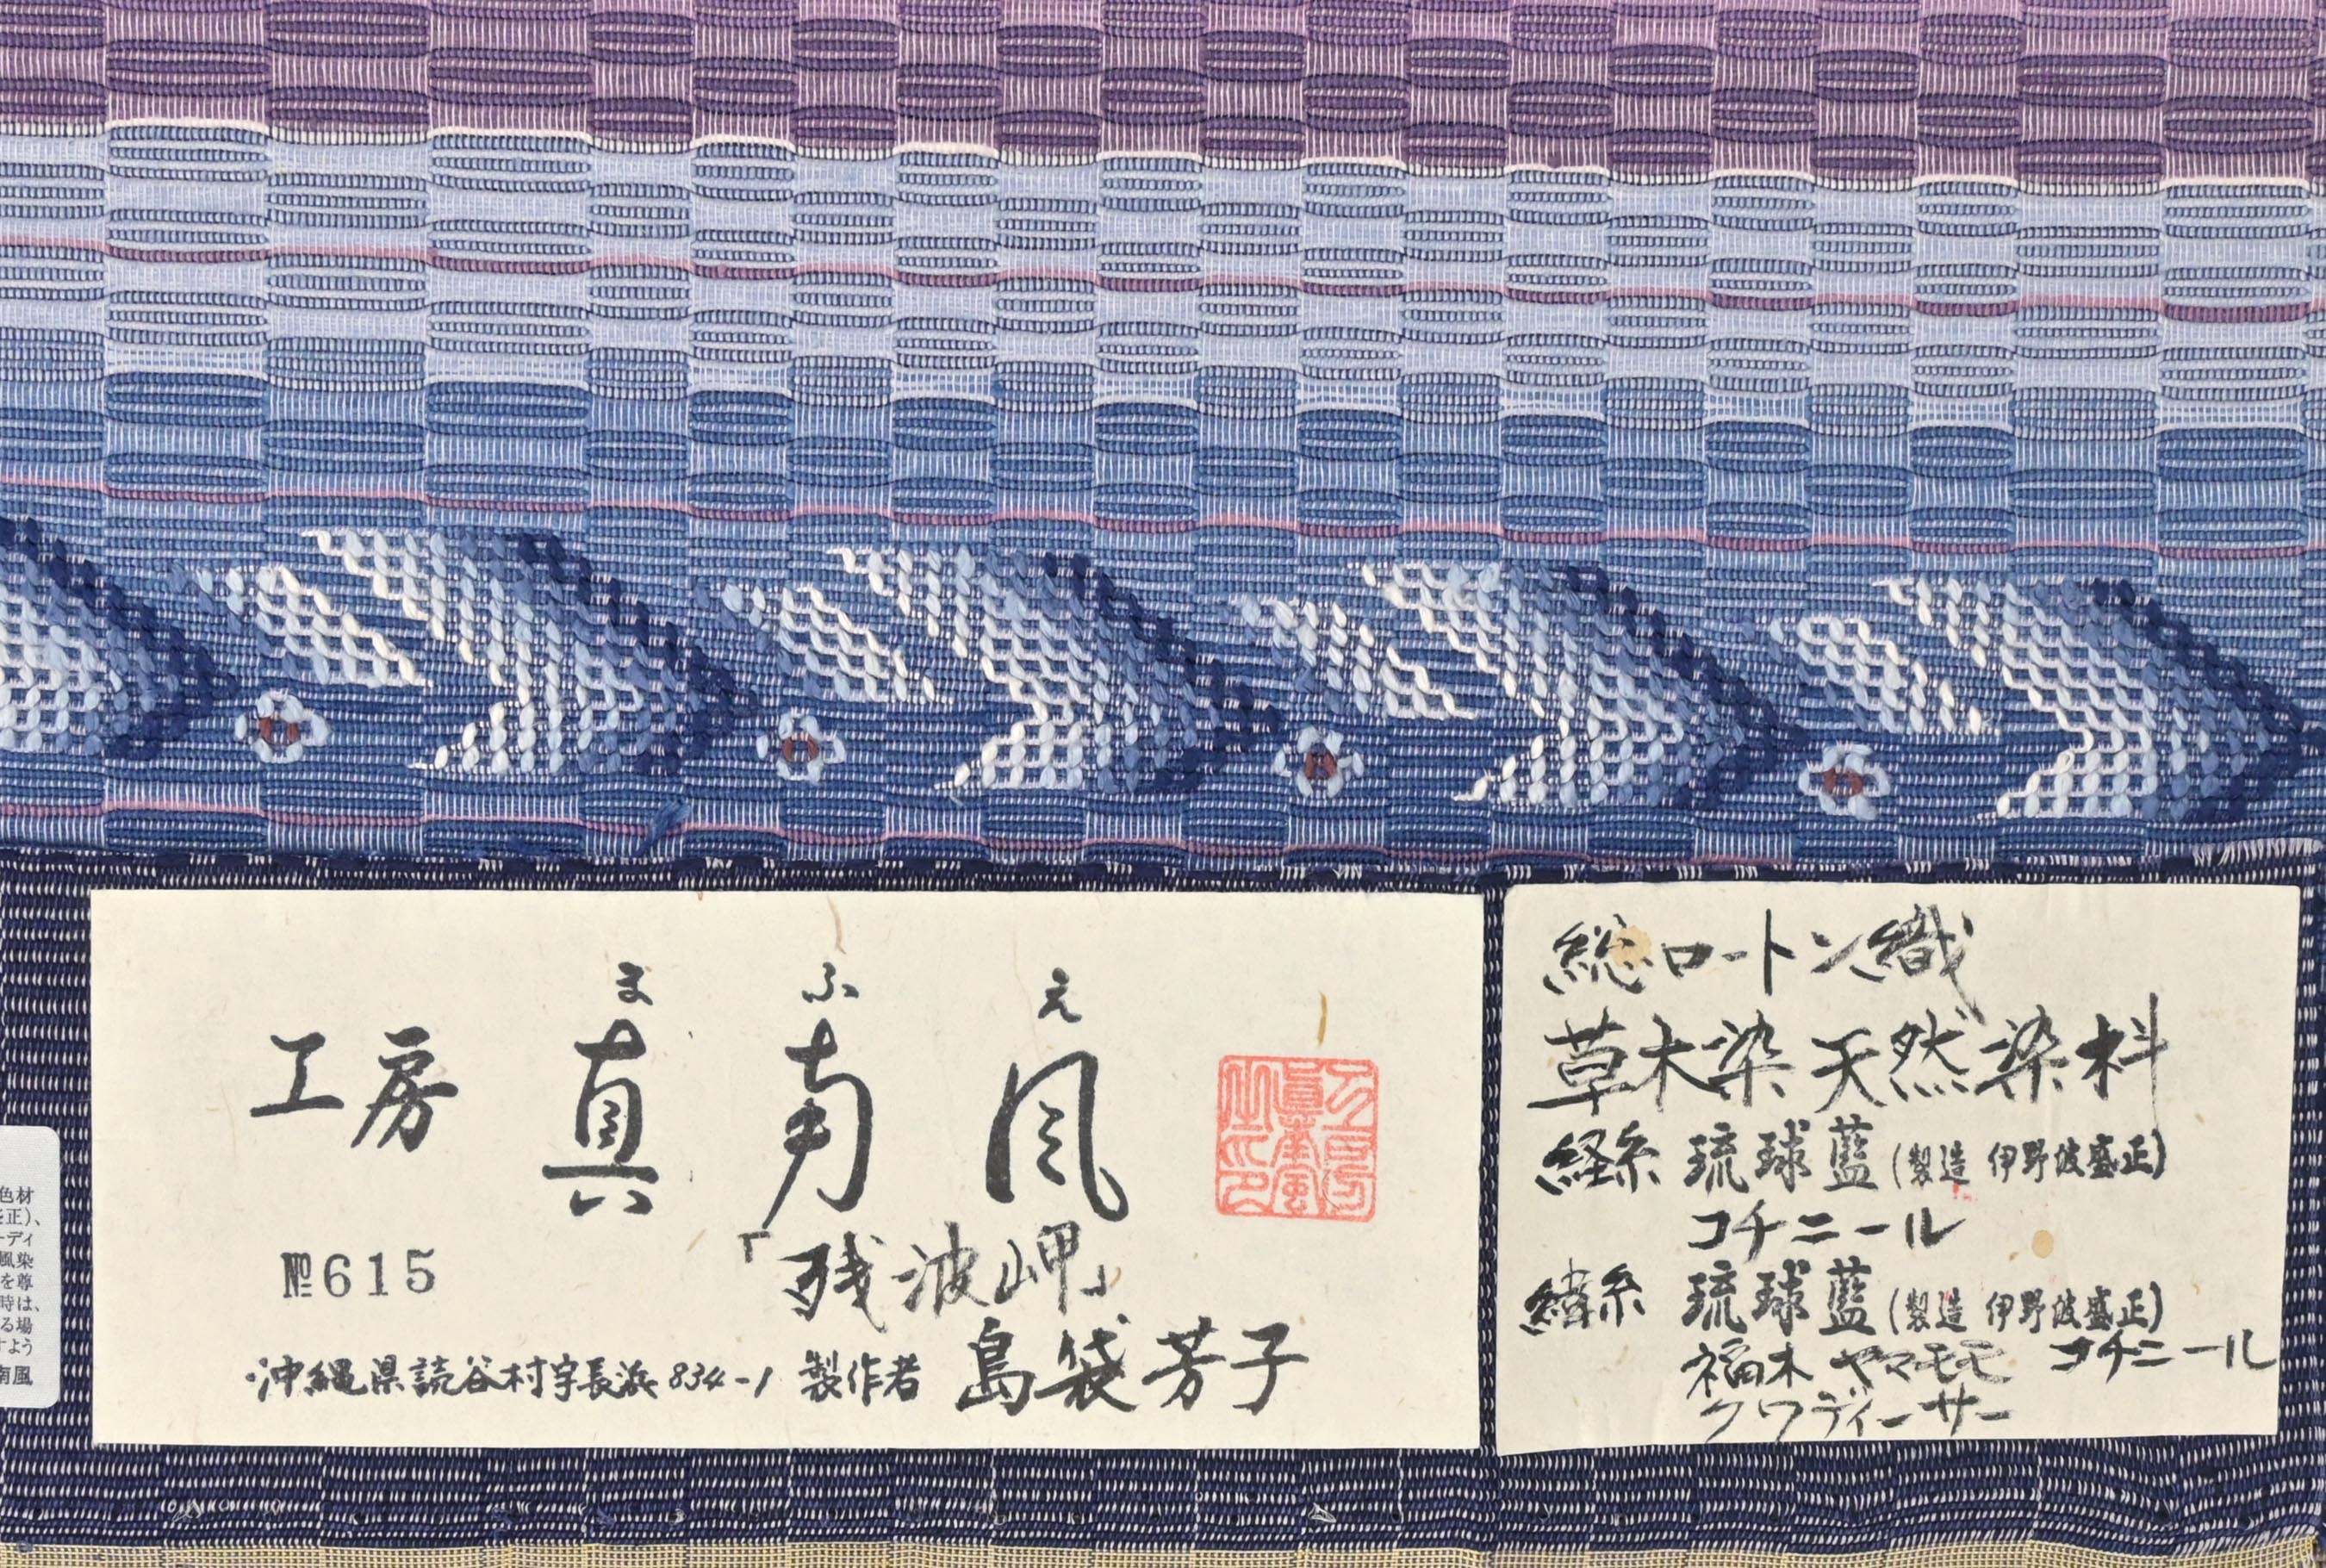 色材
正)、
ーディ
風染
を尊
時は、
る場
すよう
南風
ま ふ え
工房 真南風
「残波岬」
№615
沖縄県読谷村字長浜834-1 製作者 島袋芳子
総ロートン織
草木染 天然染料
経糸 琉球藍(製造 伊野波盛正)
コチニール
緯糸 琉球藍(製造 伊野波盛正)
福木 ヤマモモ コチニール
クワディーサー